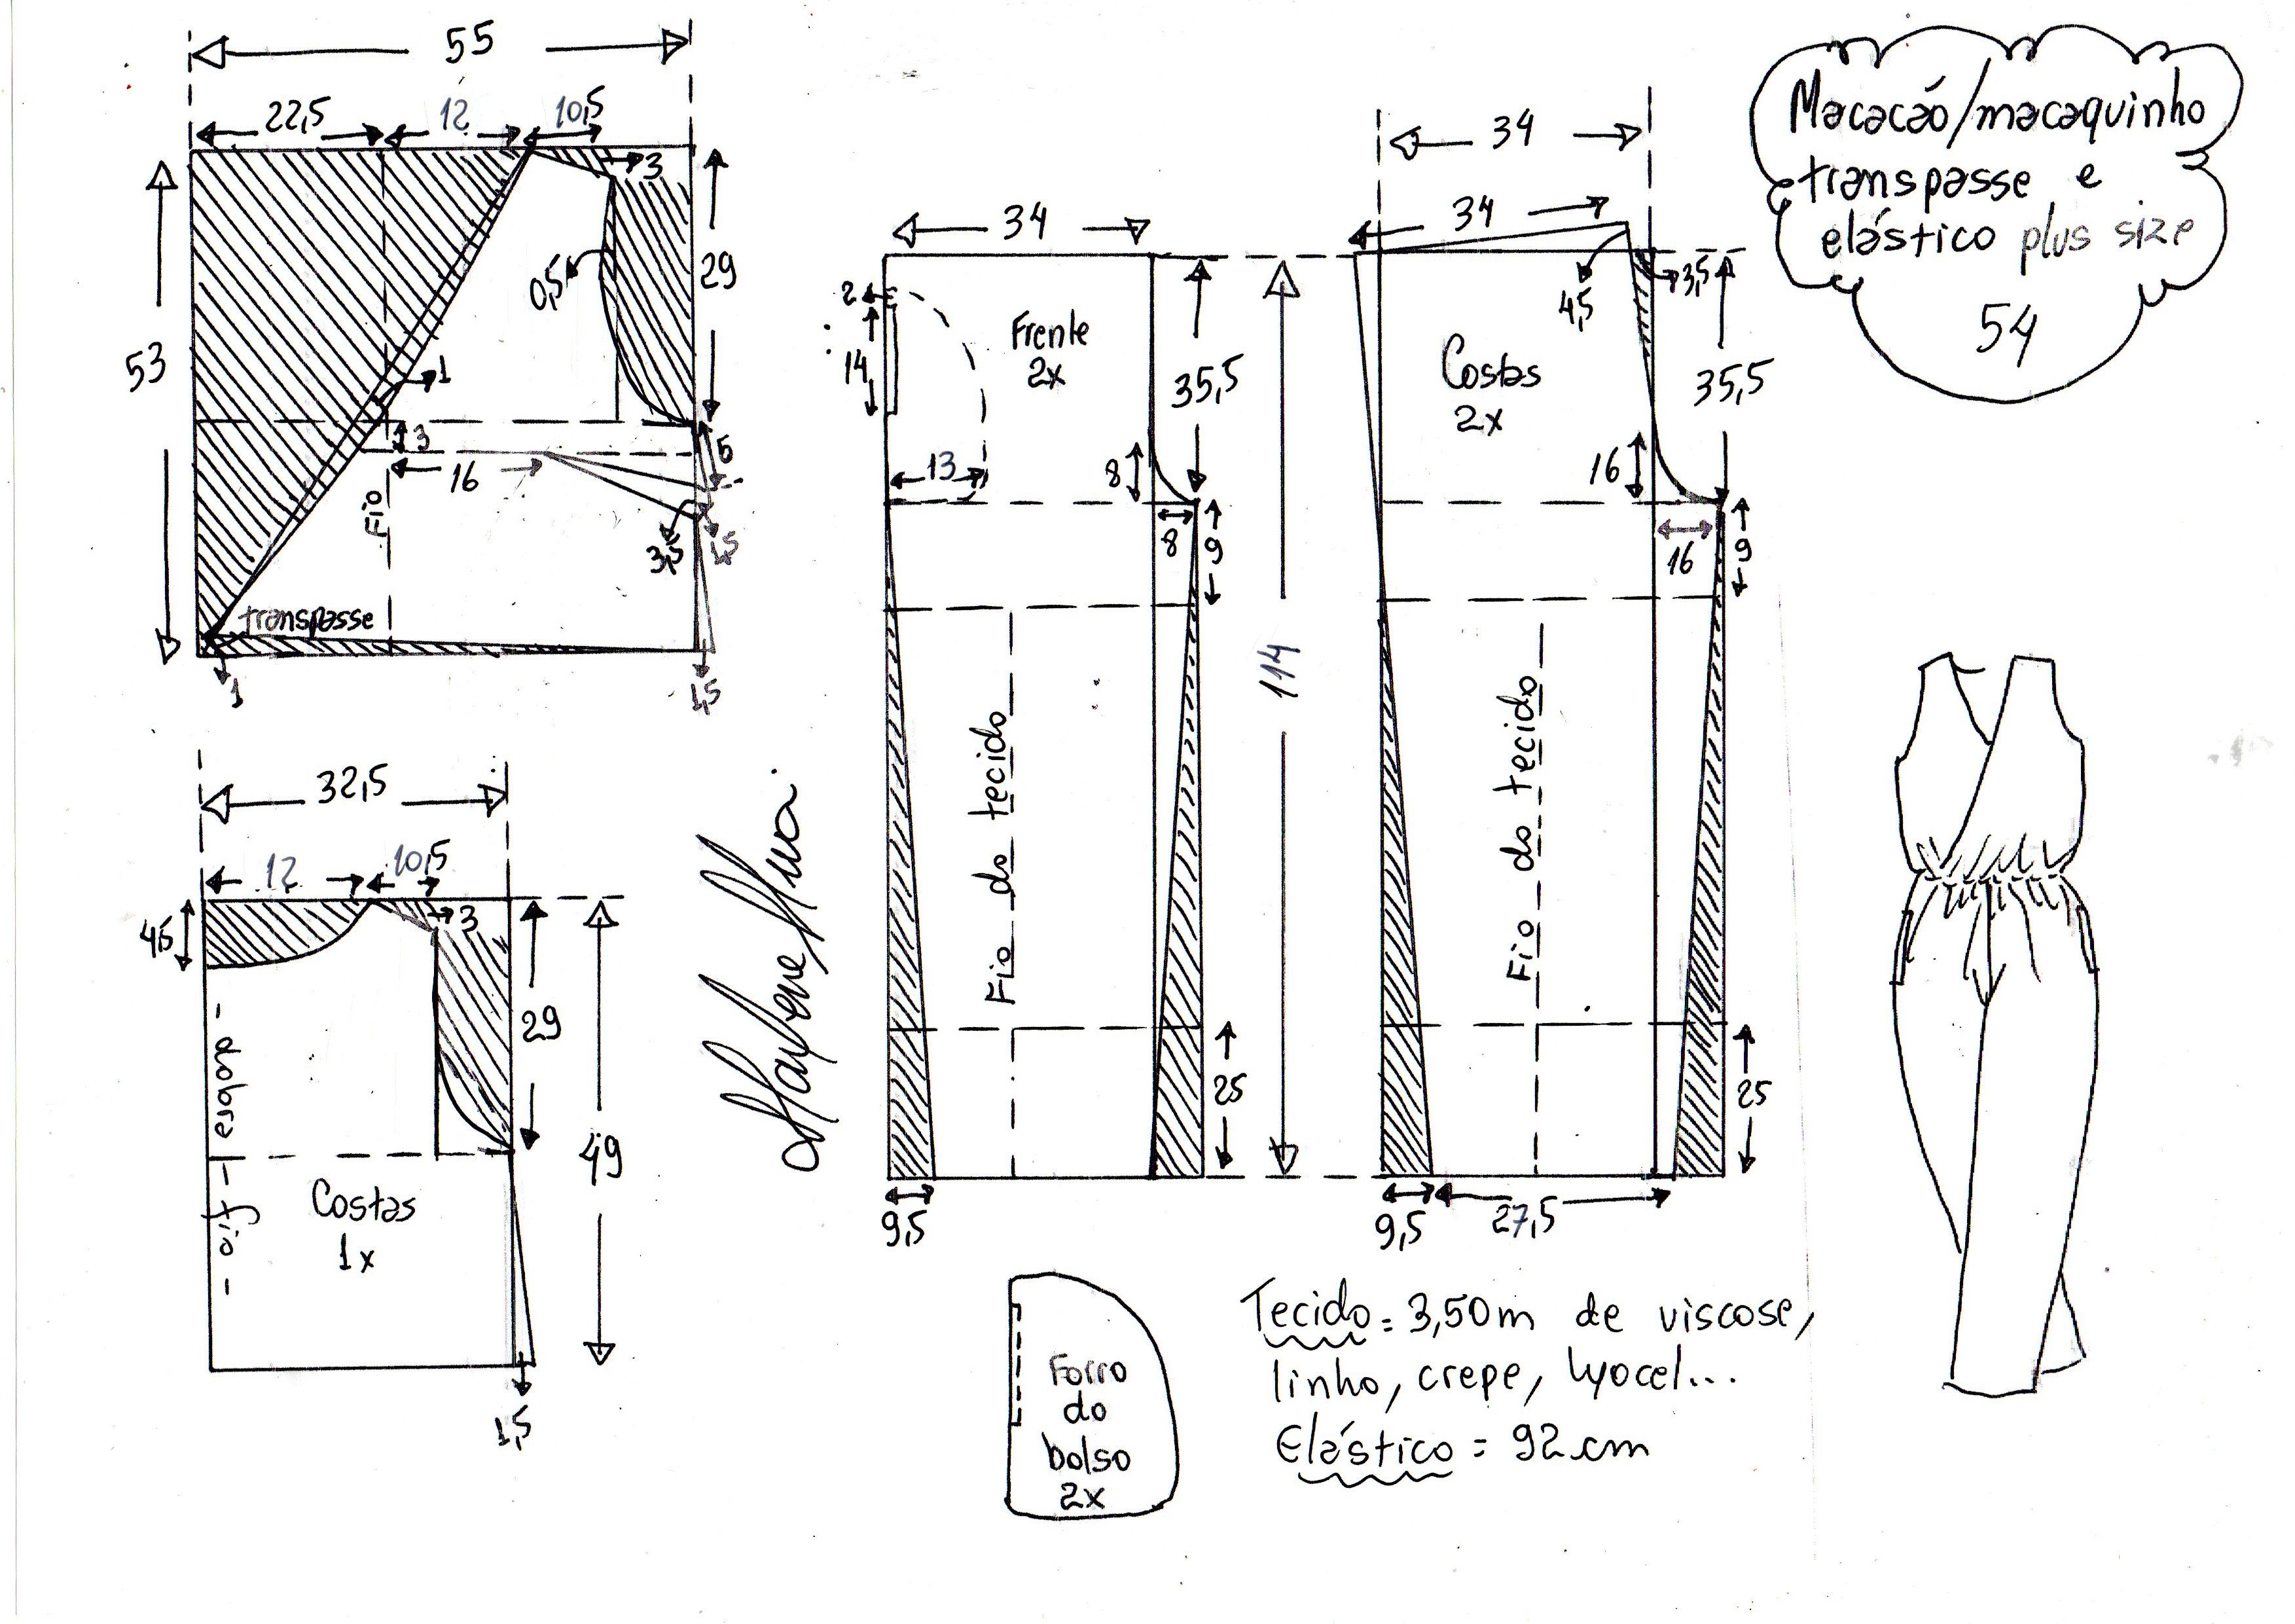 55
22,5
12
10,5
3
53
29
0,5
1
3
5
16
Fio
3,5
1,5
transpasse
1
1,5
32,5
12
10,5
4,5
3
29
49
- dobra - fio -
Costas
1x
1,5
34
2
14
Frente
2x
35,5
13
8
8
9
Fio do tecido
114
25
9,5
34
34
4,5
3,5
Costas
2x
35,5
16
16
9
Fio do tecido
25
9,5
27,5
Macacão/macaquinho
transpasse e
elástico plus size
54
Forro
do
bolso
2x
Tecido = 3,50m de viscose,
linho, crepe, lyocel...
Elástico = 92 cm